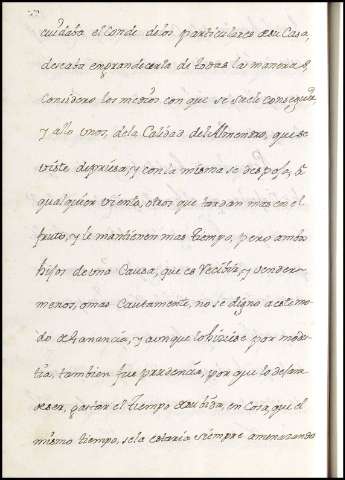 cuidaba el Conde de los particulares de su Casa,
deseaba engrandecerla de todas las maneras,
Considero los medios con que se suele conseguir,
y allo unos, de la Calidad del Almendro, que se
viste depriesa, y con la misma se despoja, à
qualquier viento, otros que tardan mas en el
fruto, y le mantienen mas tiempo, pero ambos
hijos de una Causa, que es Recibir, y vender
menos, o mas Cautamente, no se digno a este mo
do de Ganancia, y aunque lo hiciese por modes
tia, tambien fue prudencia, por que lo
gastar el tiempo de su bida, en Cosa que el
mismo tiempo, se la estaria siempre amenazando